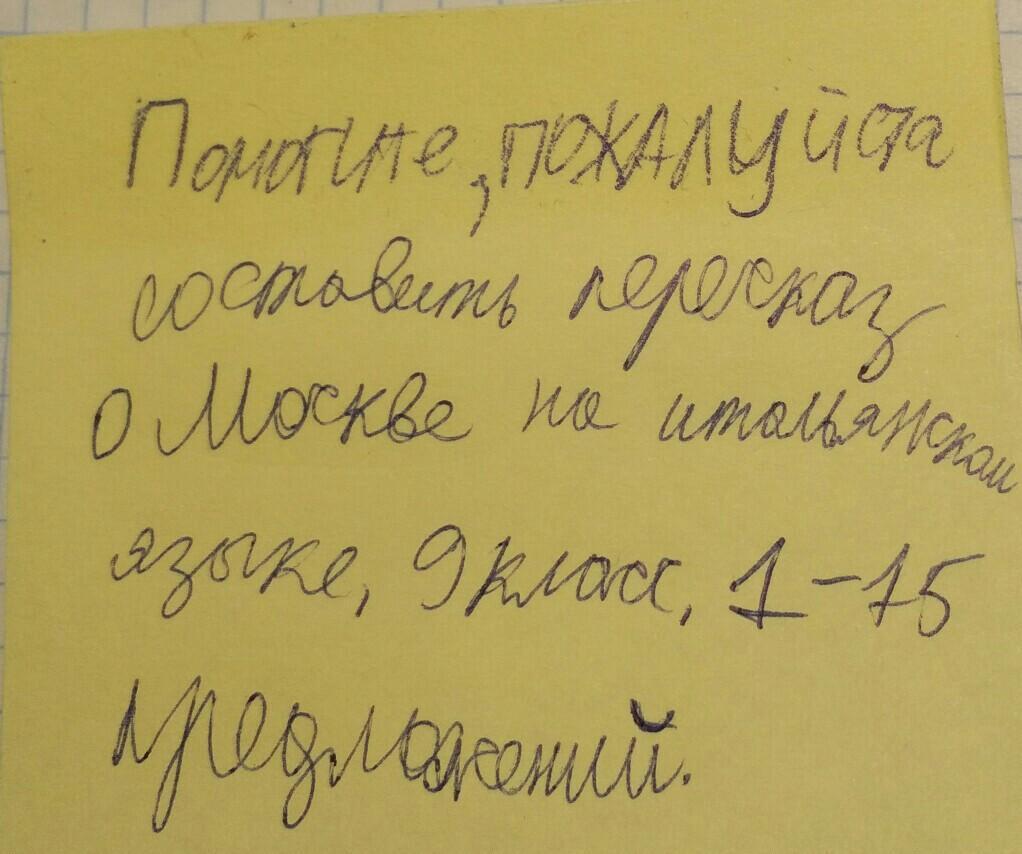 Помогите, пожалуйста
составить пересказ
о Москве на итальянском
языке, 9 класс, 1-15
предложений.